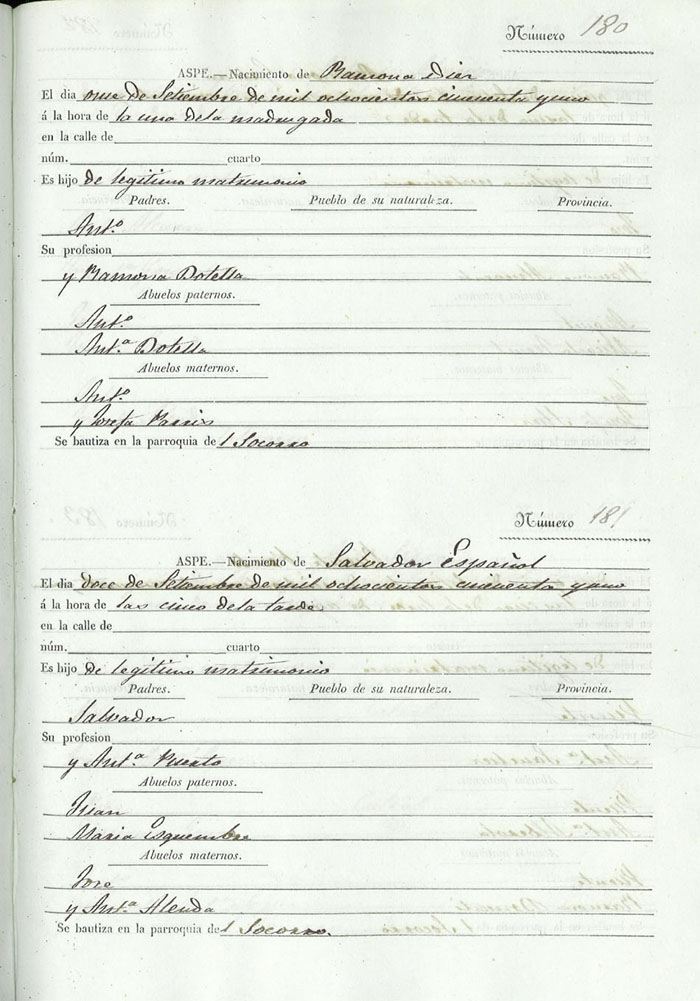 Número 180
ASPE.—Nacimiento de Ramona Dier
El dia once de Setiembre de mil ochocientos cincuenta y uno
á la hora de la una dela madrugada
en la calle de
núm. cuarto
Es hijo de legitimo matrimonio
Padres. Pueblo de su naturaleza. Provincia.
Ant.º
Su profesion
y Ramona Botella
Abuelos paternos.
Ant.º
Ant.ª Botella
Abuelos maternos.
Ant.º
y Josefa
Se bautiza en la parroquia del Socorro
Número 181
ASPE.—Nacimiento de Salvador Español
El dia doce de Setiembre de mil ochocientos cincuenta y uno
á la hora de las cinco dela tarde
en la calle de
núm. cuarto
Es hijo de legitimo matrimonio
Padres. Pueblo de su naturaleza. Provincia.
Salvador
Su profesion
y Ant.ª Puerto
Abuelos paternos.
Juan
Maria Esquembre
Abuelos maternos.
Jose
y Ant.ª Alenda
Se bautiza en la parroquia del Socorro.